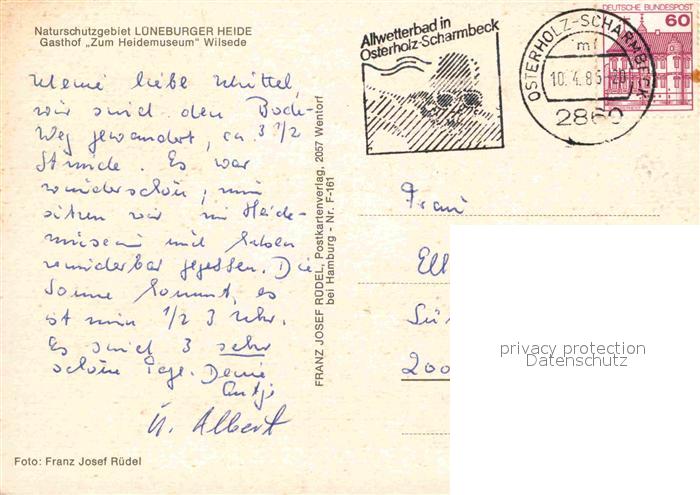 Naturschutzgebiet LÜNEBURGER HEIDE
Gasthof „Zum Heidemuseum" Wilsede
Meine liebe Mittel,
wir sind den Bode-
Weg gewandert, ca. 3 1/2
Stunde. Es war
wunderschön, nun
sitzen wir im Heide-
museum und haben
wunderbar gegessen. Die
Sonne kommt, es
ist nun 1/2 3 Uhr.
Es sind 3 sehr
schöne Tage. Deine
Antje
u. Albert
Foto: Franz Josef Rüdel
FRANZ JOSEF RÜDEL, Postkartenverlag, 2057 Wentorf
bei Hamburg - Nr. F-161
Allwetterbad in
Osterholz-Scharmbeck
OSTERHOLZ-SCHARMBECK
mf
10.4.85-20
2860
DEUTSCHE BUNDESPOST
60
Frau
Ell
200
privacy protection
Datenschutz